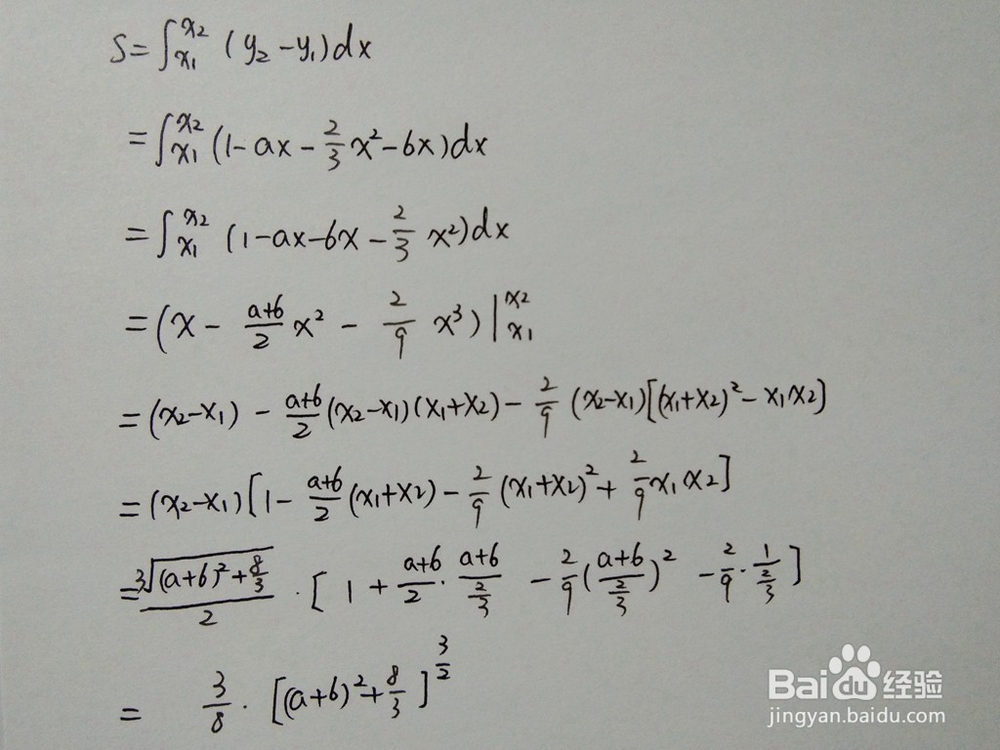 S=∫_{x1}^{x2} (y2-y1)dx
=∫_{x1}^{x2} (1-ax-\frac{2}{3}x²-6x)dx
=∫_{x1}^{x2} (1-ax-6x-\frac{2}{3}x²)dx
=(x-\frac{a+6}{2}x²-\frac{2}{9}x³)|_{x1}^{x2}
=(x2-x1)-\frac{a+6}{2}(x2-x1)(x1+x2)-\frac{2}{9}(x2-x1)[(x1+x2)²-x1x2]
=(x2-x1)[1-\frac{a+6}{2}(x1+x2)-\frac{2}{9}(x1+x2)²+\frac{2}{9}x1x2]
=\frac{3\sqrt{(a+6)²+\frac{8}{3}}}{2}·[1+\frac{a+6}{2}·\frac{a+6}{\frac{2}{3}}-\frac{2}{9}(\frac{a+6}{\frac{2}{3}})²-\frac{2}{9}·\frac{1}{\frac{2}{3}}]
=\frac{3}{8}·[(a+6)²+\frac{8}{3}]^{\frac{3}{2}}
Baidu 经验
jingyan.baidu.com